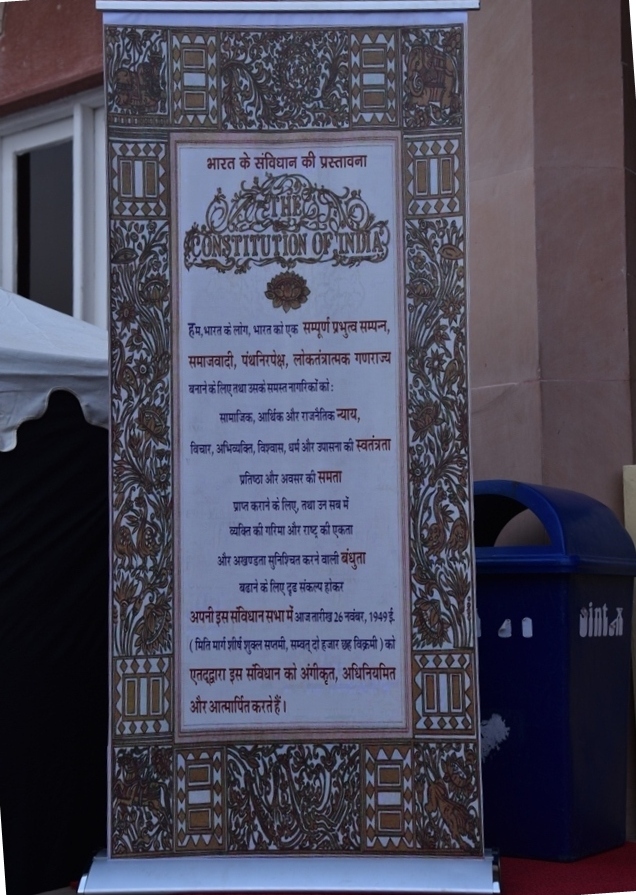 भारत के संविधान की प्रस्तावना
THE
CONSTITUTION OF INDIA
हम,भारत के लोग, भारत को एक सम्पूर्ण प्रभुत्व सम्पन्न,
समाजवादी, पंथनिरपेक्ष, लोकतंत्रात्मक गणराज्य
बनाने के लिए तथा उसके समस्त नागरिकों को :
सामाजिक, आर्थिक और राजनैतिक न्याय,
विचार, अभिव्यक्ति, विश्वास, धर्म और उपासना की स्वतंत्रता
प्रतिष्ठा और अवसर की समता
प्राप्त कराने के लिए, तथा उन सब में
व्यक्ति की गरिमा और राष्ट्र की एकता
और अखण्डता सुनिश्चित करने वाली बंधुता
बढाने के लिए दृढ संकल्प होकर
अपनी इस संविधान सभा में आज तारीख 26 नवंबर, 1949 ई.
( मिति मार्ग शीर्ष शुक्ल सप्तमी, सम्वत् दो हजार छह विक्रमी ) को
एतद्द्वारा इस संविधान को अंगीकृत, अधिनियमित
और आत्मार्पित करते हैं।